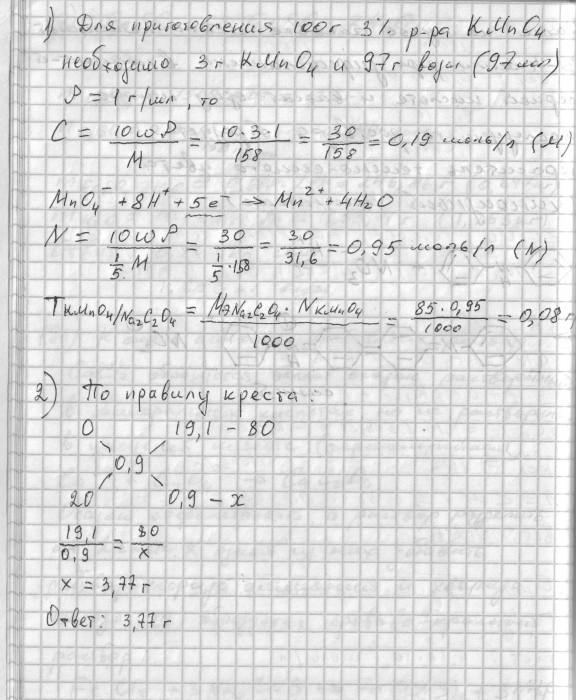 1) Для приготовления 100г 3% р-ра KMnO4
необходимо 3г KMnO4 и 97г воды (97мл)
ρ = 1 г/мл, то
C = 10ωρ/M = 10·3·1/158 = 30/158 = 0,19 моль/л (M)
MnO4⁻ + 8H⁺ + 5e⁻ → Mn²⁺ + 4H2O
N = 10ωρ/(1/5 M) = 30/(1/5·158) = 30/31,6 = 0,95 моль/л (N)
T KMnO4/Na2C2O4 = MэNa2C2O4 · N KMnO4/1000 = 85·0,95/1000 = 0,08г
2) По правилу креста:
0 19,1 – 80
0,9
20 0,9 – x
19,1/0,9 = 80/x
x = 3,77 г
Ответ: 3,77 г